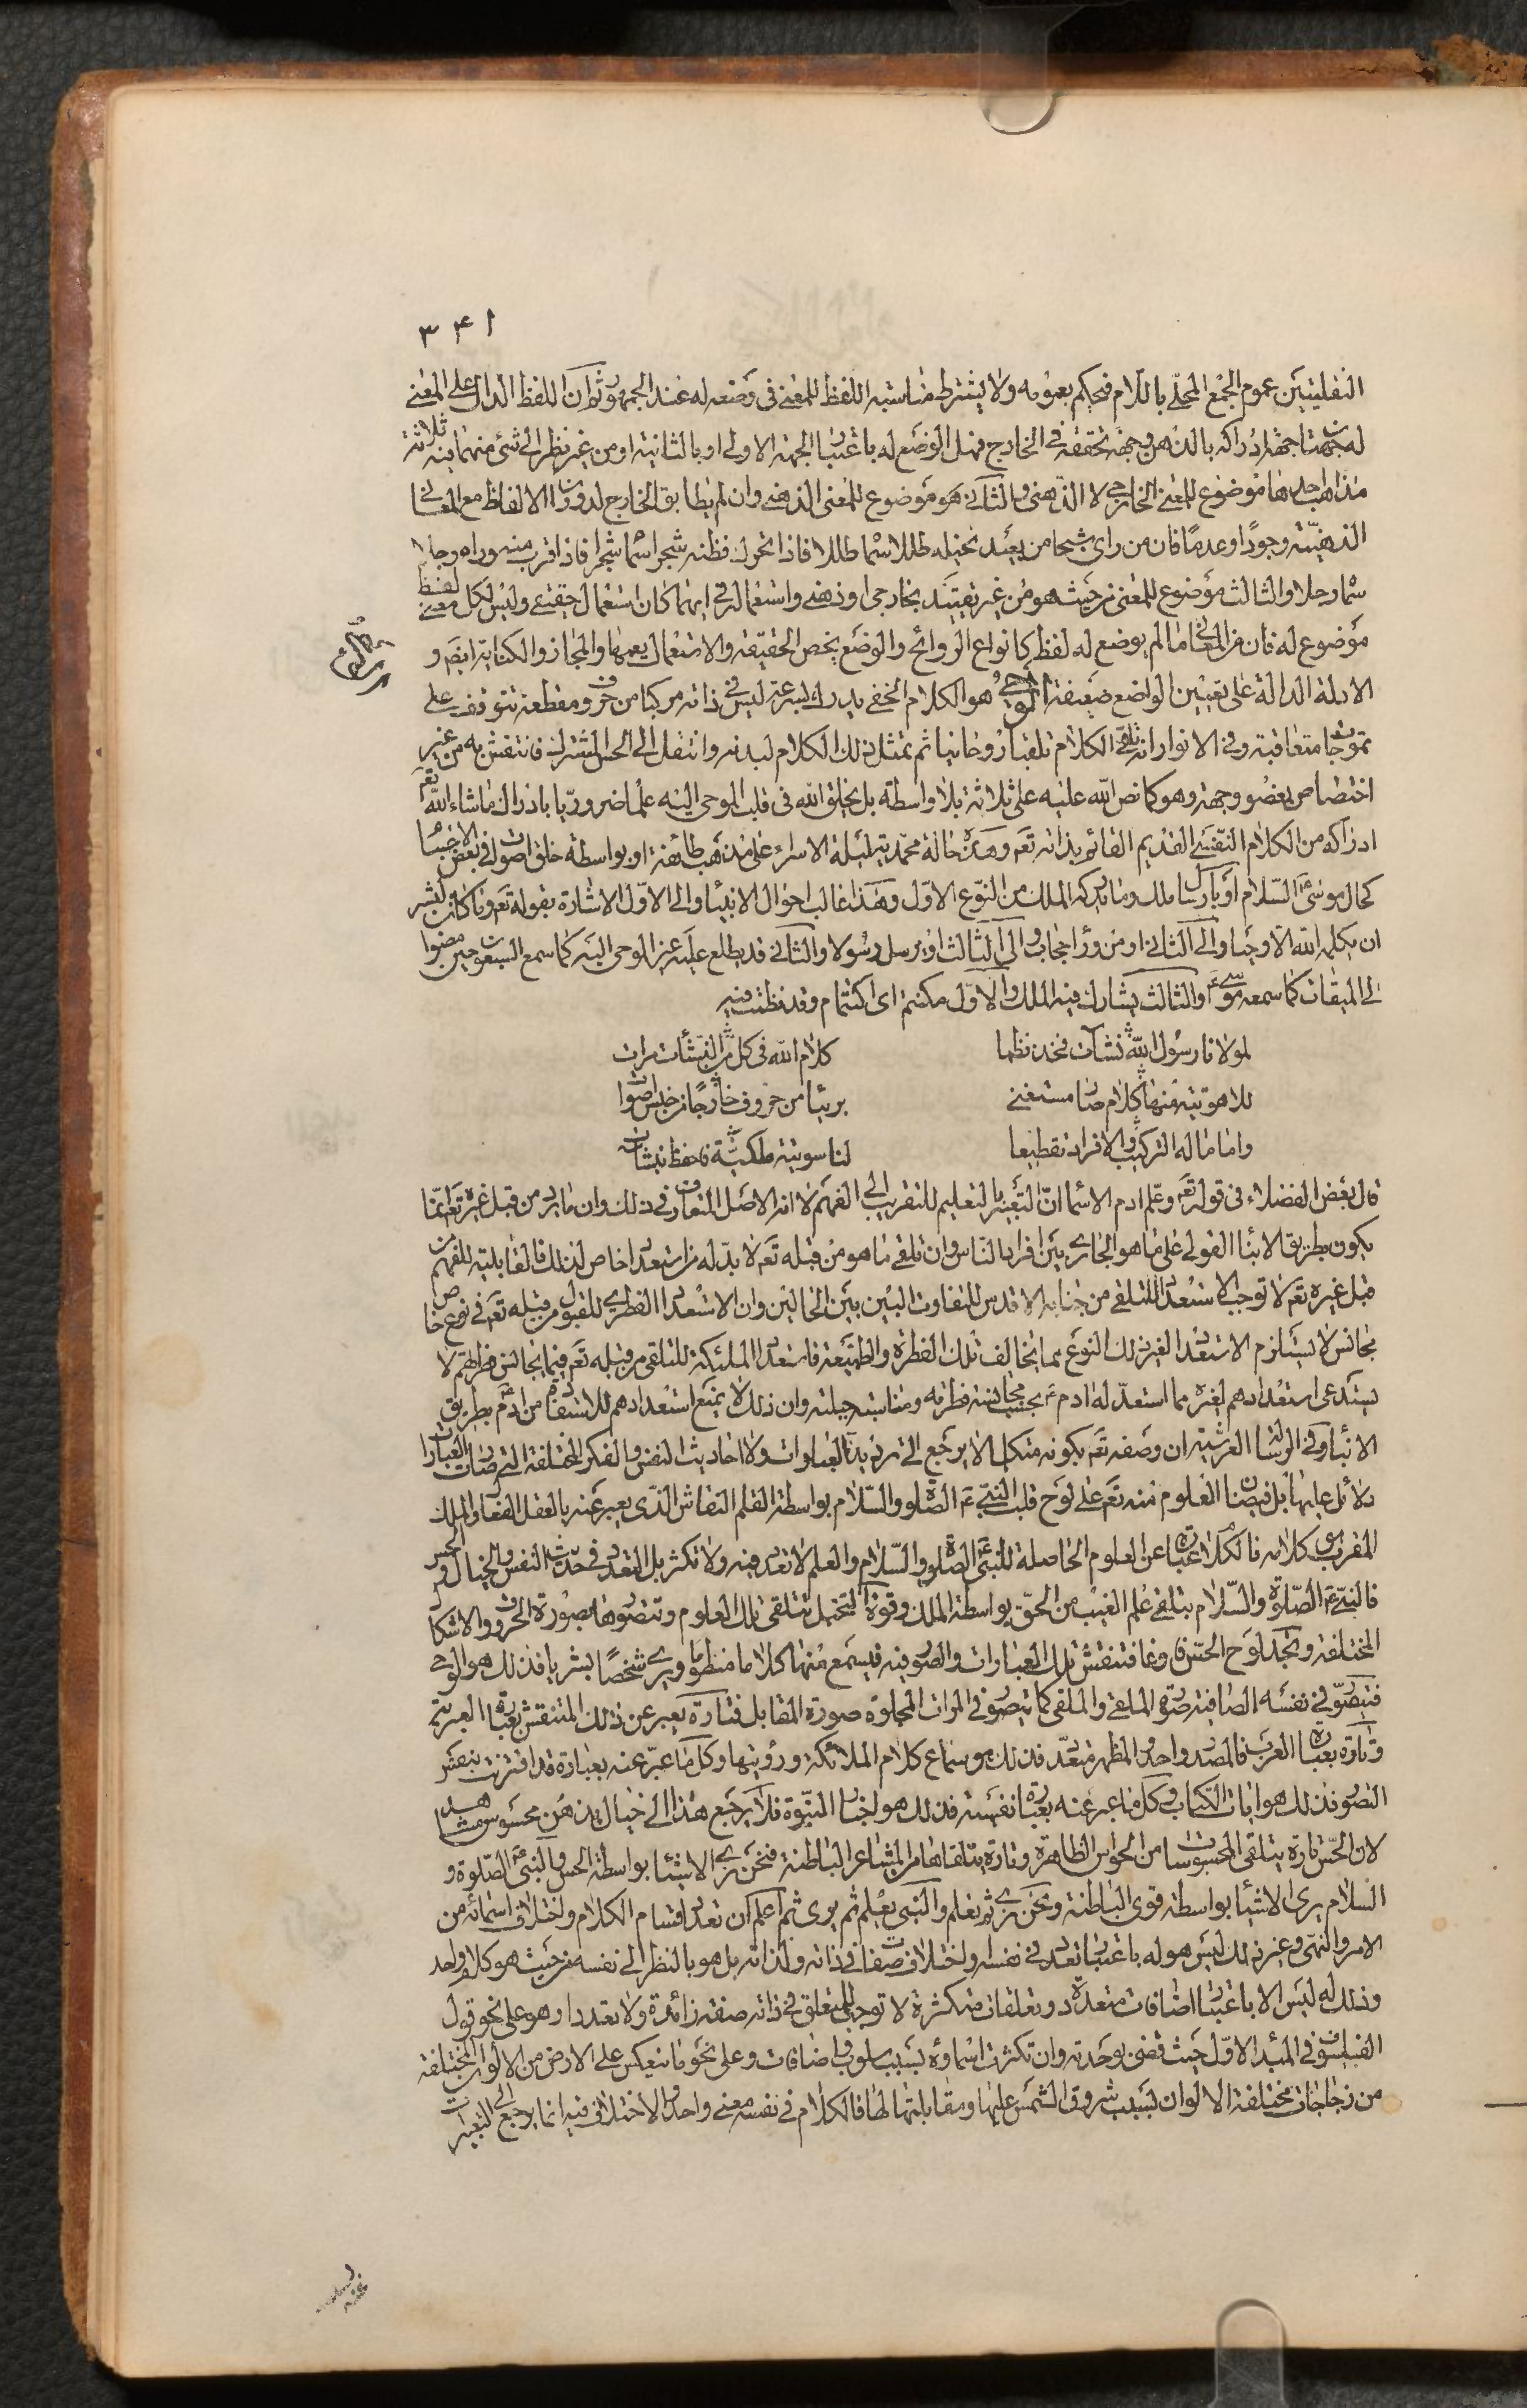 ٣٤١
النقليتين عموم الجمع المحلى باللام فيحكم بعمومه ولا يشترط مناسبة اللفظ للمعنى في وضعه له عند الجمهور ثم ان اللفظ الدال على المعنى
له جهتان جهة ادراكه بالذهن وجهة تحققه في الخارج فهل الوضع له باعتبار الجهة الاولى او بالثانية او من غير نظر الى شئ منهما فيه ثلاثة
مذاهب احدها موضوع للمعنى الخارجي لا الذهني والثاني هو موضوع للمعنى الذهني وان لم يطابق الخارج لدوران الالفاظ مع المعاني
الذهنية وجودا وعدما فان من راى شبحا من بعيد تخيله طللا سماه طللا فاذا تحرك فظنه شجرا سماه شجرا فاذا قرب منه وراه رجلا
سماه رجلا والثالث موضوع للمعنى من حيث هو من غير تقييد بخارجي او ذهني واستعماله في ايهما كان استعمال حقيقي وليس لكل معنى لفظ
موضوع له فان من المعاني ما لم يوضع له لفظ كانواع الروائح والوضع يخص الحقيقة والاستعمال يعمها والمجاز والكناية ايضا و
الادلة الدالة على تعيين الواضع ضعيفة الوحي هو الكلام الخفي يدرك بسرعة ليس في ذاته مركبا من حروف مقطعة تتوقف على
تموجات متعاقبة وفي الانوار انه تلقى الكلام تلقيا روحانيا ثم تمثل ذلك الكلام لبدنه وانتقل الى الحس المشترك فانتقش به من غير
اختصاص بعضو وجهة وهو كما نص الله عليه على ثلاثة بلا واسطة بل يخلق الله في قلب الموحى اليه علما ضروريا بادراك ما شاء الله تع
ادراكه من الكلام النفسي القديم القائم بذاته تع وهذه حالة محمدية ليلة الاسراء على مذهب طائفة او بواسطة خلق اصوات في بعض الاجسام
كحال موسى ع م السلام او بارسال ملك وما يدركه الملك من النوع الاول وهذا غالب احوال الانبياء والى الاول الاشارة بقوله تع وما كان لبشر
ان يكلمه الله الا وحيا والى الثاني او من وراء حجاب والى الثالث او يرسل رسولا والثاني قد يطلع عليه غير الموحى اليه كما سمع السبعون حين مضوا
الى الميقات كما سمعه موسى ع م والثالث يشارك فيه الملك والاول مكتم اي اكتتام وقد نظمت فيه
لمولانا رسول الله نشآت فخذ نظما كلام الله في كل من النشأت مرات
للاهوتية منها كلام صار مستغنى بريئا من حروف خارجا من جنس اصوات
واما ما له التركيب والافراد تقطيعا لناسوتية ملكية فاحفظ نشان
قال بعض الفضلاء في قوله تع وعلم ادم الاسماء ان التعبير بالتعليم للتقريب الى الفهم لا انه الاصل المتعارف في ذلك وان ما يرد من قبل غيره تع انما
يكون بطريق الانباء القولي على ما هو الجاري بين افراد الناس وان تلقي ما هو من قبله تع لا بد له من استعداد خاص لذلك فالقابلية للفهم من
قبل غيره تع لا توجب الاستعداد للتلقي من جنابه الاقدس للتفاوت البين بين الحالين وان الاستعداد الفطري للقبول من قبله تع في نوع خاص
مجانس لا يستلزم الاستعداد لغير ذلك النوع مما يخالف تلك الفطرة والطبيعة فاستعداد الملئكة للتلقي من قبله تع فيما يجانس فطرتهم لا
يستدعي استعدادهم لغيره مما استعد له ادم ع م بحسب مجانسة فطرته ومناسبة جبلته وان ذلك لا يمنع استعدادهم للاستفادة من ادم بطريق
الانباء وفي الرسالة العرشية ان وصفه تع بكونه متكلما لا يرجع الى ترديد العبارات ولا احاديث النفس والفكر المختلفة التي صارت العبارات
دلائل عليها بل فيضان العلوم منه تع على لوح قلب النبي عم الصلوة والسلام بواسطة القلم النقاش الذي يعبر عنه بالعقل الفعال والملك
المقرب هو كلامه فالكلام عبارة عن العلوم الحاصلة للنبي ع م الصلوة والسلام والعلم لا تعدد فيه ولا تكثر بل التعدد في حديث النفس والخيال والحس
فالنبي ع م الصلوة والسلام يتلقى علم الغيب من الحق بواسطة الملك وقوة التخيل تتلقى تلك العلوم وتتصورها بصورة الحروف والاشكال
المختلفة وتجد لوح الحس فارغا فتنتقش تلك العبارات والصور فيه فيسمع منها كلاما منظوما ويرى شخصا بشريا فذلك هو الوحي
فيتصور في نفسه الصافية صورة الملقي والملقى كما يتصور في المرآت المجلوة صورة المقابل فتارة يعبر عن ذلك المنتقش بعبارة العبرية
وتارة بعبارة العرب فالمصدر واحد والمظهر متعدد فذلك هو سماع كلام الملائكة ورؤيتها وكل ما عبر عنه بعبارة قد اقترنت بنفس
التصور فذلك هو ايات الكتاب وكل ما عبر عنه بعبارة نفسية فذلك هو اخبار النبوة فلا يرجع هذا الى خيال يذهن محسوس مشاهد
لان الحس تارة يتلقى المحسوسات من الحواس الظاهرة وتارة يتلقاها من المشاعر الباطنة فنحن نرى الاشياء بواسطة الحس والنبي ع م الصلوة و
السلام يرى الاشياء بواسطة قوى الباطنة ونحن نرى ثم نعلم والنبي يعلم ثم يرى ثم اعلم ان تعدد اقسام الكلام واختلاف اسمائه من
الامر والنهي وغير ذلك ليس هو له باعتبار تعدد في نفسه واختلاف صفات في ذاته ولذاته بل هو بالنظر الى نفسه من حيث هو كلام واحد
وذلك له ليس الا باعتبار اضافات متعددة وتعلقات متكثرة لا توجب للمتعلق في ذاته صفة زائدة ولا تعددا وهو على نحو قول
الفيلسوف في المبدا الاول حيث قضى بوحدته وان تكثرت اسماؤه بسبب سلوب واضافات وعلى نحو ما ينعكس على الارض من الالوان المختلفة
من زجاجات مختلفة الالوان بسبب شروق الشمس عليها ومقابلتها لها فالكلام في نفسه معنى واحد والاختلاف فيه انما يرجع الى التعبيرات